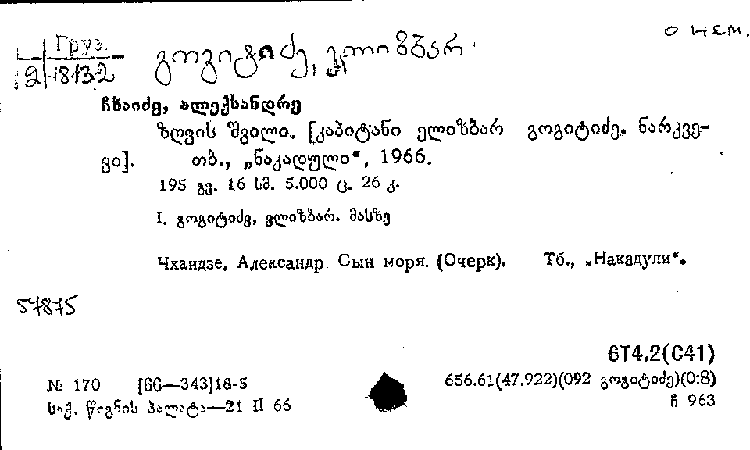 о нем.
Груз.
2 18132
გოგიტიძე, ელიზბარ
ჩხაიძე, ალექსანდრე
ზღვის შვილი. [კაპიტანი ელიზბარ გოგიტიძე. ნარკვე-
ვი]. თბ., „ნაკადული“, 1966.
195 გვ. 16 სმ. 5.000 ც. 26 კ.
I. გოგიტიძე, ელიზბარ. მასზე
Чхаидзе, Александр. Сын моря. (Очерк). Тб., „Накадули“.
57875
6Т4.2(С41)
№ 170 [66—343]18-5
656.61(47.922)(092 გოგიტიძე)(0:8)
საქ. წიგნის პალატა—21 II 66
ჩ 963